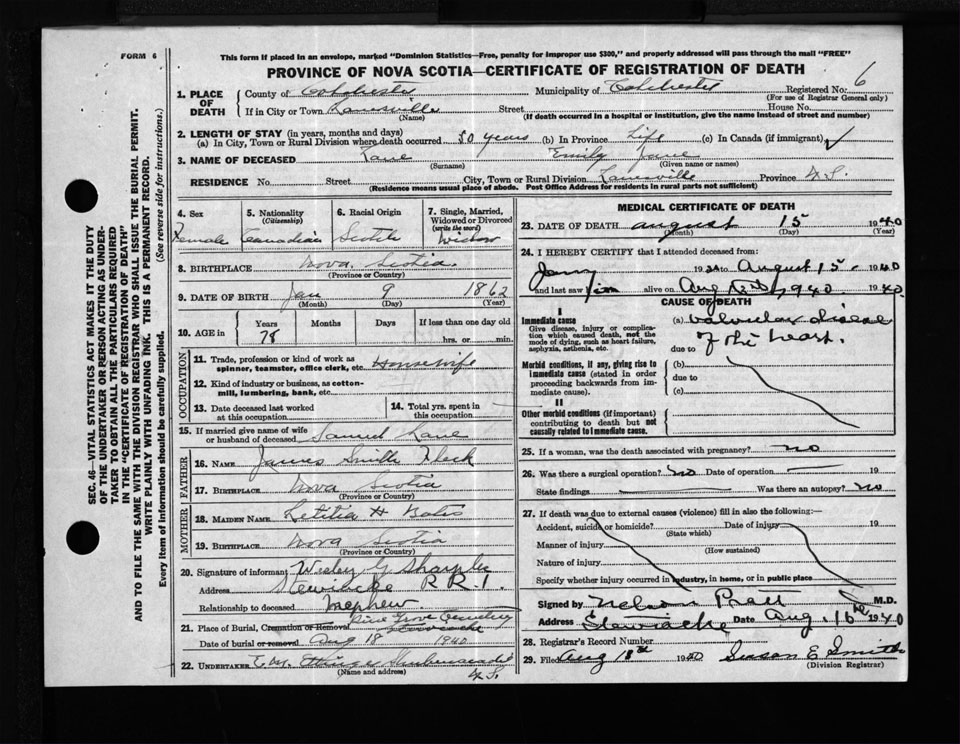 FORM 6
This form if placed in an envelope, marked "Dominion Statistics—Free, penalty for improper use $300," and properly addressed will pass through the mail "FREE"
PROVINCE OF NOVA SCOTIA—CERTIFICATE OF REGISTRATION OF DEATH
6
1. PLACE OF DEATH County of Colchester Municipality of Colchester Registered No.
(For use of Registrar General only)
If in City or Town Lanesville Street House No.
(Name) (If death occurred in a hospital or institution, give the name instead of street and number)
2. LENGTH OF STAY (in years, months and days)
(a) In City, Town or Rural Division where death occurred 50 years (b) In Province Life (c) In Canada (if immigrant)
3. NAME OF DECEASED Lane Emily Jane
(Surname) (Given name or names)
RESIDENCE No. Street City, Town or Rural Division Lanesville Province N.S.
(Residence means usual place of abode. Post Office Address for residents in rural parts not sufficient)
4. Sex Female
5. Nationality (Citizenship) Canadian
6. Racial Origin Scotch
7. Single, Married, Widowed or Divorced (write the word) Widow
8. BIRTHPLACE Nova Scotia
(Province or Country)
9. DATE OF BIRTH Jan 9 1862
(Month) (Day) (Year)
10. AGE in Years Months Days If less than one day old
78 hrs. or min.
OCCUPATION
11. Trade, profession or kind of work as spinner, teamster, office clerk, etc. Housewife
12. Kind of industry or business, as cotton-mill, lumbering, bank, etc.
13. Date deceased last worked at this occupation
14. Total yrs. spent in this occupation
15. If married give name of wife or husband of deceased Samuel Lane
FATHER
16. NAME James Smith
17. BIRTHPLACE Nova Scotia
(Province or Country)
MOTHER
18. MAIDEN NAME Letitia H
19. BIRTHPLACE Nova Scotia
(Province or Country)
20. Signature of informant Wesley G
Address Stewiacke R.R.1.
Relationship to deceased Nephew
21. Place of Burial, Cremation or Removal Pine Grove Cemetery
Stewiacke
Date of burial or removal Aug 18 1940
22. UNDERTAKER Shubenacadie
(Name and address) N.S.
MEDICAL CERTIFICATE OF DEATH
23. DATE OF DEATH August 15 1940
(Month) (Day) (Year)
24. I HEREBY CERTIFY that I attended deceased from:
19 to August 15 1940
and last saw alive on Aug 1940
CAUSE OF DEATH
I
Immediate cause (a) Valvular disease
Give disease, injury or complication which caused death, not the mode of dying, such as heart failure, asphyxia, asthenia, etc.
due to of the heart.
Morbid conditions, if any, giving rise to immediate cause (stated in order proceeding backwards from immediate cause).
(b)
due to
(c)
II
Other morbid conditions (if important) contributing to death but not causally related to immediate cause.
25. If a woman, was the death associated with pregnancy? no
26. Was there a surgical operation? no Date of operation 19
State findings Was there an autopsy? no
27. If death was due to external causes (violence) fill in also the following:—
Accident, suicide or homicide? Date of injury 19
(State which)
Manner of injury
(How sustained)
Nature of injury
Specify whether injury occurred in industry, in home, or in public place
Signed by Nelson Pratt M.D.
Address Stewiacke Date Aug. 16th 1940
28. Registrar's Record Number
29. Filed Aug 18th 1940 Susan E Smith
(Division Registrar)
SEC. 46—VITAL STATISTICS ACT MAKES IT THE DUTY
OF THE UNDERTAKER OR PERSON ACTING AS UNDER-
TAKER TO OBTAIN ALL THE PARTICULARS REQUIRED
IN THE "CERTIFICATE OF REGISTRATION OF DEATH"
AND TO FILE THE SAME WITH THE DIVISION REGISTRAR WHO SHALL ISSUE THE BURIAL PERMIT.
WRITE PLAINLY WITH UNFADING INK. THIS IS A PERMANENT RECORD.
Every item of information should be carefully supplied. (See reverse side for instructions.)